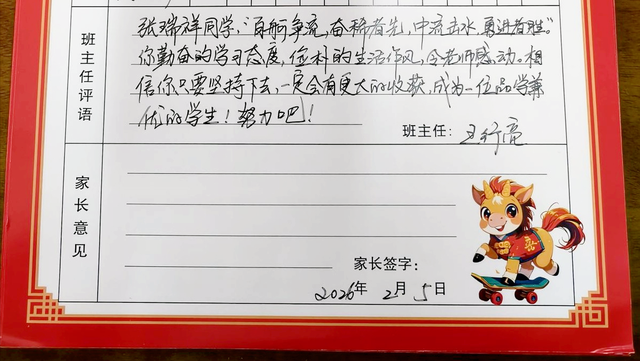 班主任评语
张瑞祥同学,“百舸争流,奋楫者先,中流击水,勇进者胜。”
你勤奋的学习态度,俭朴的生活作风,令老师感动。相
信你只要坚持下去,一定会有更大的收获,成为一位品学兼
优的学生!努力吧!
班主任:王行亮
家长意见
家长签字:
2026年2月5日